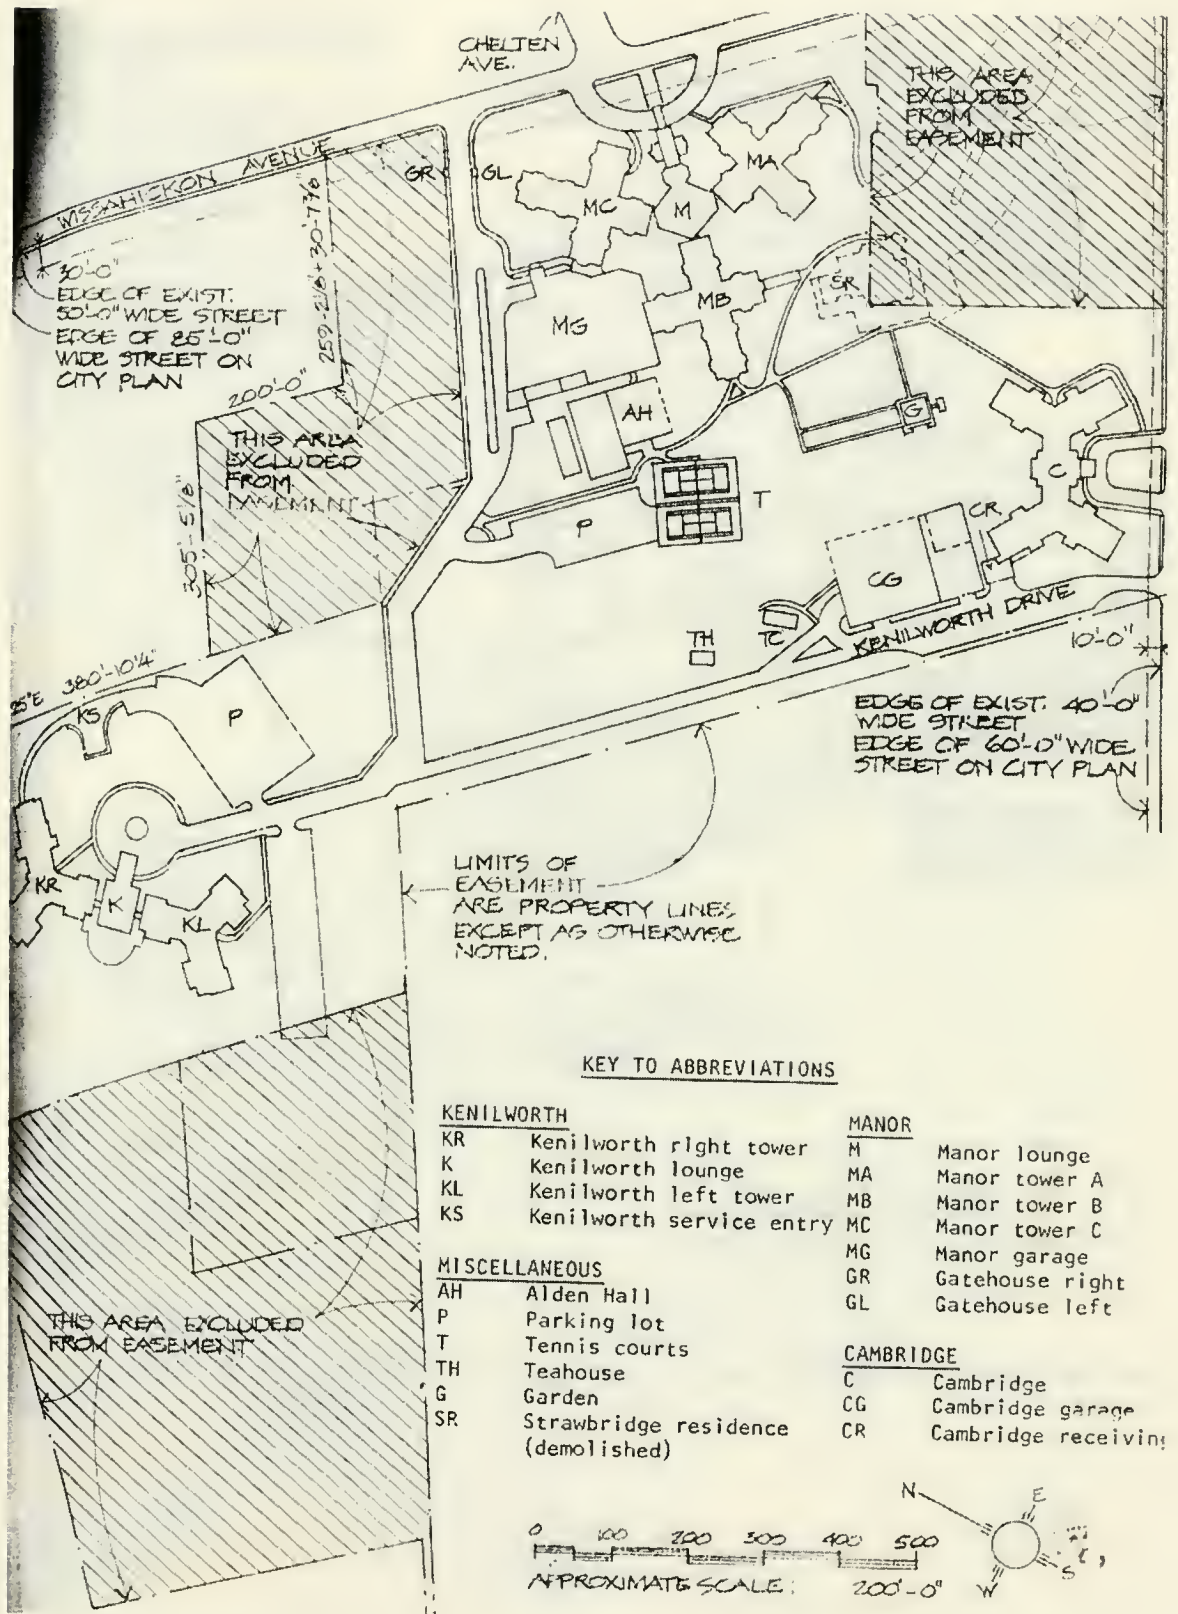 CHELTEN
AVE.
THIS AREA
EXCLUDED
FROM
EASEMENT
WISSAHISKON AVENUE
GR
GL
MC
M
MA
30'-0"
EDGE OF EXIST.
50'-0" WIDE STREET
EDGE OF 85'-0"
WIDE STREET ON
CITY PLAN
259-2 1/8 + 30'-7 3/8"
MG
MB
SR
200'-0"
AH
G
THIS AREA
EXCLUDED
FROM
EASEMENT
305'-5 1/8"
T
P
C
CR
CG
TH
TC
KENILWORTH DRIVE
10'-0"
25"E 380'-10 1/4"
KS
P
EDGE OF EXIST. 40'-0"
WIDE STREET
EDGE OF 60'-0" WIDE
STREET ON CITY PLAN
KR
K
KL
LIMITS OF
EASEMENT
ARE PROPERTY LINES
EXCEPT AS OTHERWISE
NOTED.
KEY TO ABBREVIATIONS
KENILWORTH
KR Kenilworth right tower
K Kenilworth lounge
KL Kenilworth left tower
KS Kenilworth service entry
MISCELLANEOUS
AH Alden Hall
P Parking lot
T Tennis courts
TH Teahouse
G Garden
SR Strawbridge residence
(demolished)
MANOR
M Manor lounge
MA Manor tower A
MB Manor tower B
MC Manor tower C
MG Manor garage
GR Gatehouse right
GL Gatehouse left
CAMBRIDGE
C Cambridge
CG Cambridge garage
CR Cambridge receiving
THIS AREA EXCLUDED
FROM EASEMENT
0 100 200 300 400 500
APPROXIMATE SCALE: 200'-0"
N
E
S
W